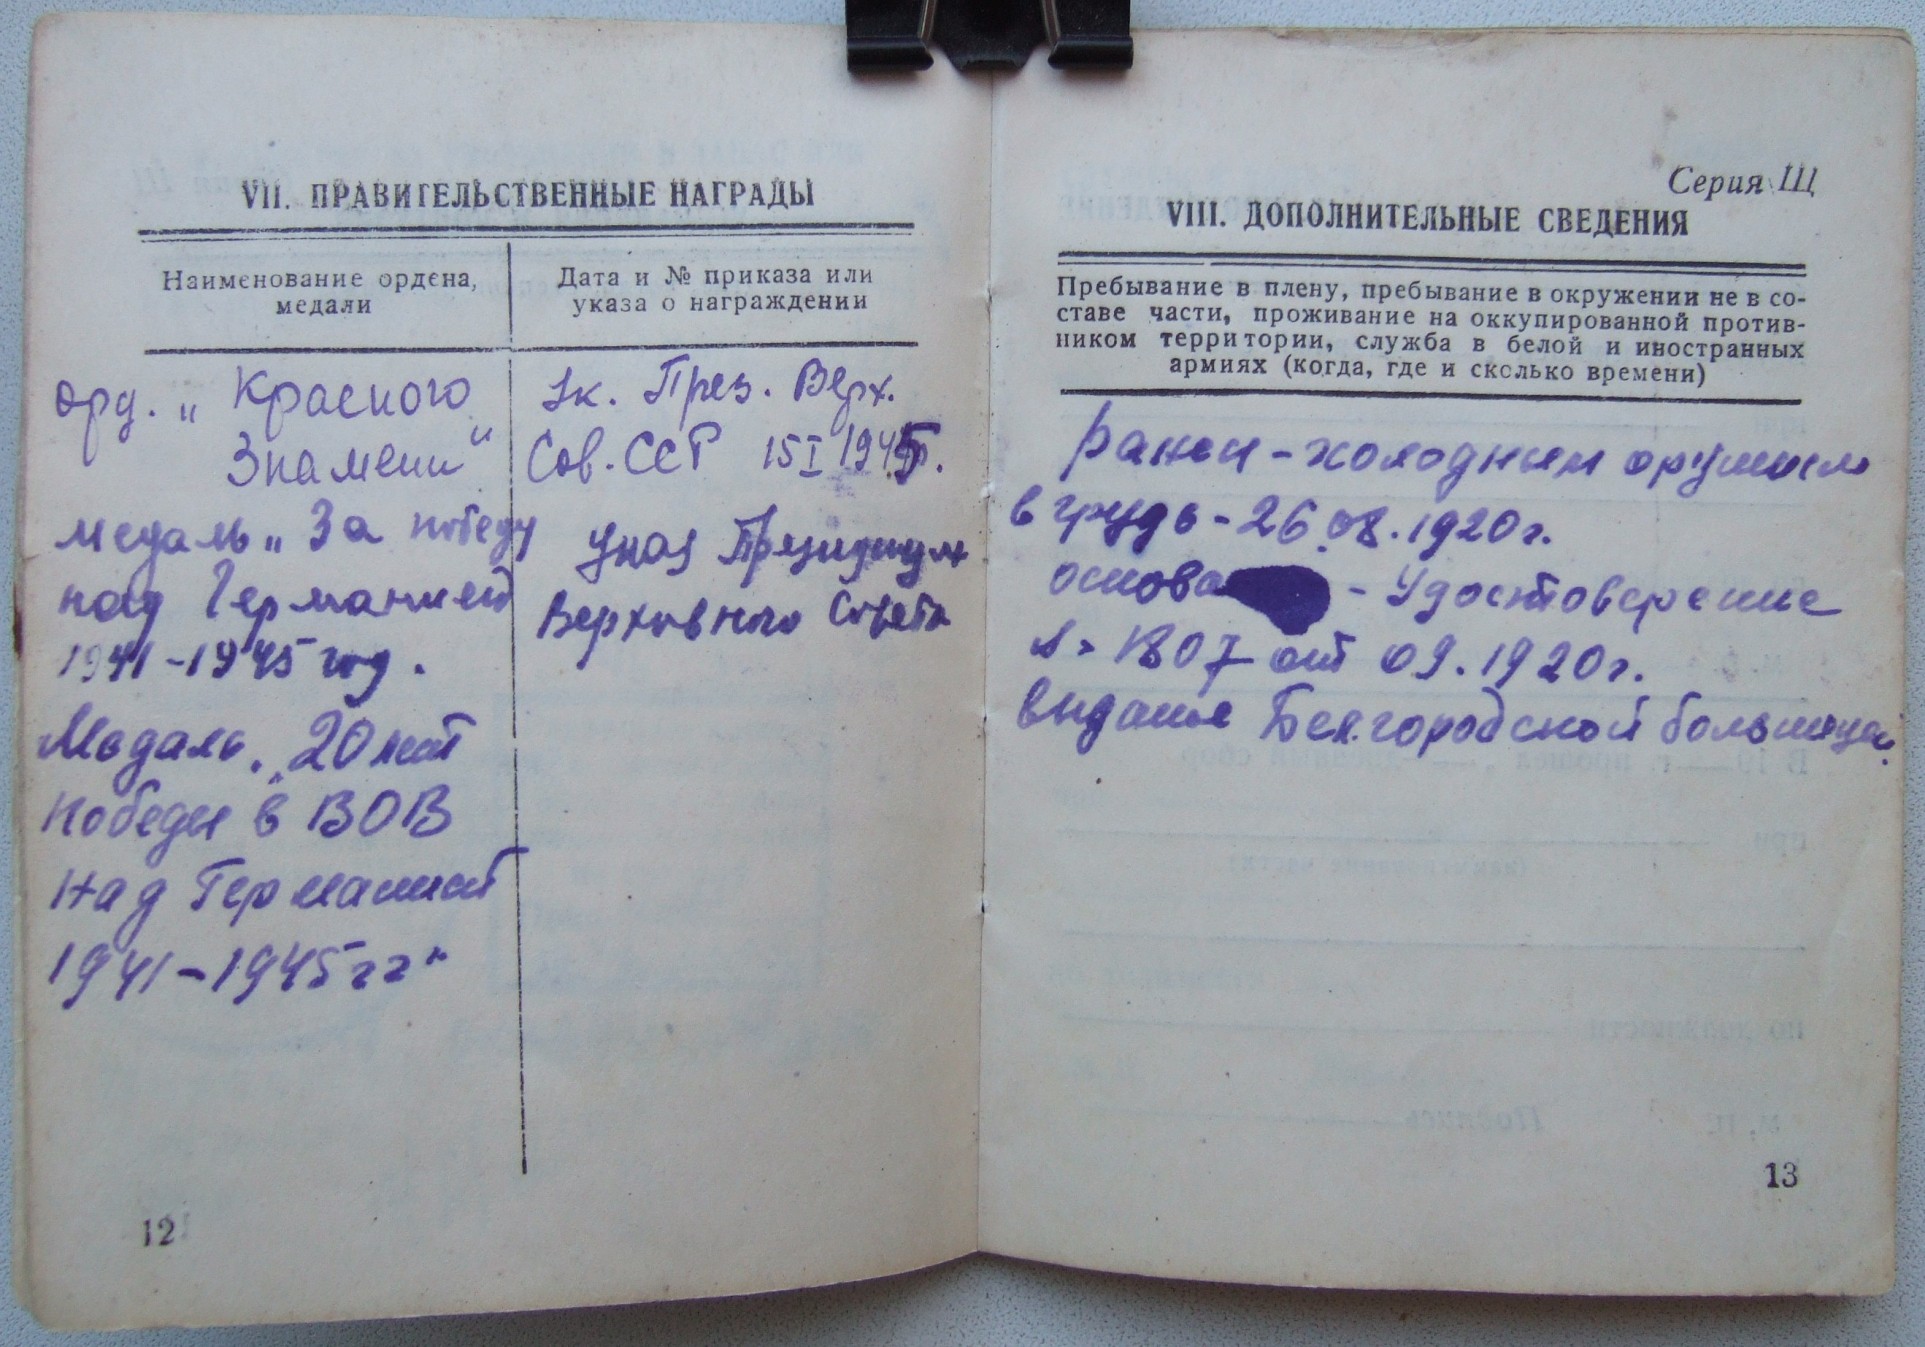 VII. ПРАВИТЕЛЬСТВЕННЫЕ НАГРАДЫ
Наименование ордена,
медали
Дата и № приказа или
указа о награждении
орд. „Красного
Знамени"
Ук. През. Верх.
Сов. ССР 15 I 1945.
медаль „За победу
над Германией
1941-1945 год.
Указ Президиум
Верховного Совета
Медаль „20 лет
Победы в ВОВ
Над Германией
1941-1945 гг"
12
Серия Щ
VIII. ДОПОЛНИТЕЛЬНЫЕ СВЕДЕНИЯ
Пребывание в плену, пребывание в окружении не в со-
ставе части, проживание на оккупированной против-
ником территории, служба в белой и иностранных
армиях (когда, где и сколько времени)
Ранен - холодным оружием
в грудь - 26.08.1920г.
- Удостоверение
1807 от 09.1920г.
выдання Белгородской больницей.
13